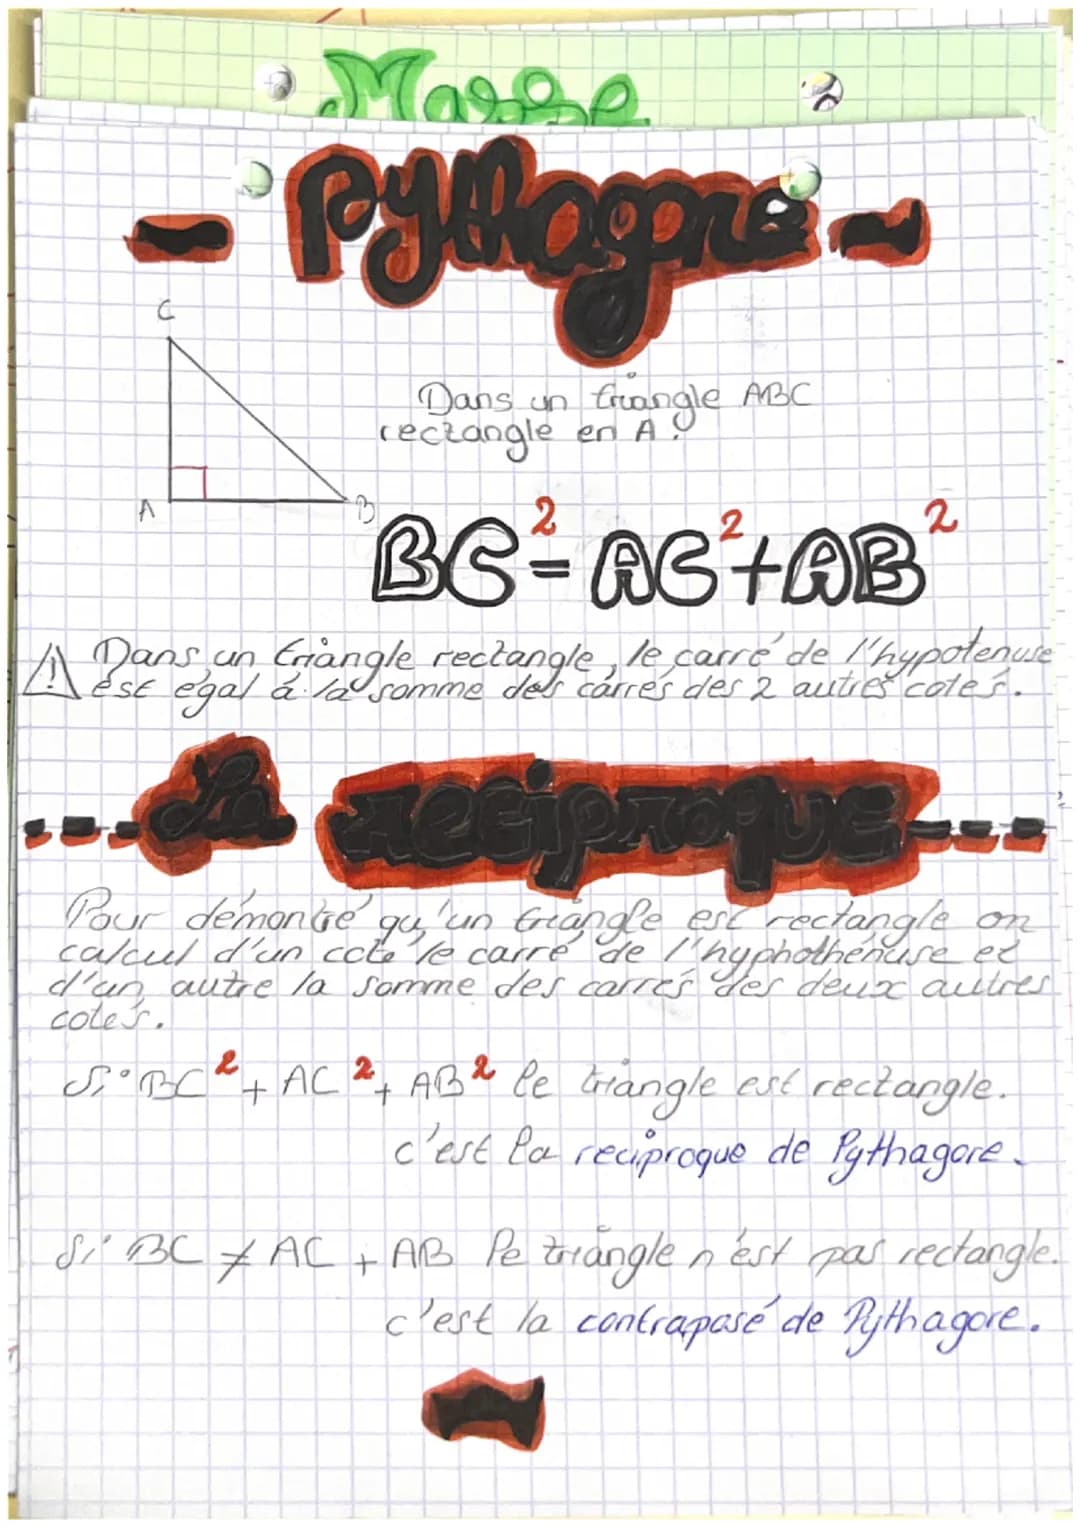 Masse
Pythagore
C
Dans un triangle ABC
rectangle en A :
A
B
BC² = AC² + AB²
! Dans un triangle rectangle, le carré de l'hypotenuse
est égal á la somme des carrés des 2 autres cotés.
La réciproque
Pour démontré qu'un triangle est rectangle on
calcul d'un coté le carré de l'hyphothénuse et
d'un autre la somme des carrés des deux autres
cotés.
Si BC² + AC² + AB² le triangle est rectangle.
c'est la reciproque de Pythagore.
Si BC ≠ AC + AB le triangle n'est pas rectangle.
c'est la contraposé de Pythagore.